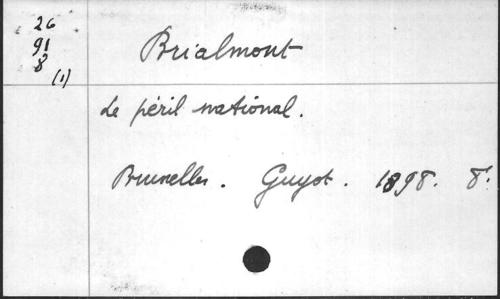 26
91
8
(1)
Brialmont
Le péril national.
Bruxelles. Guyot. 1898. 8°.